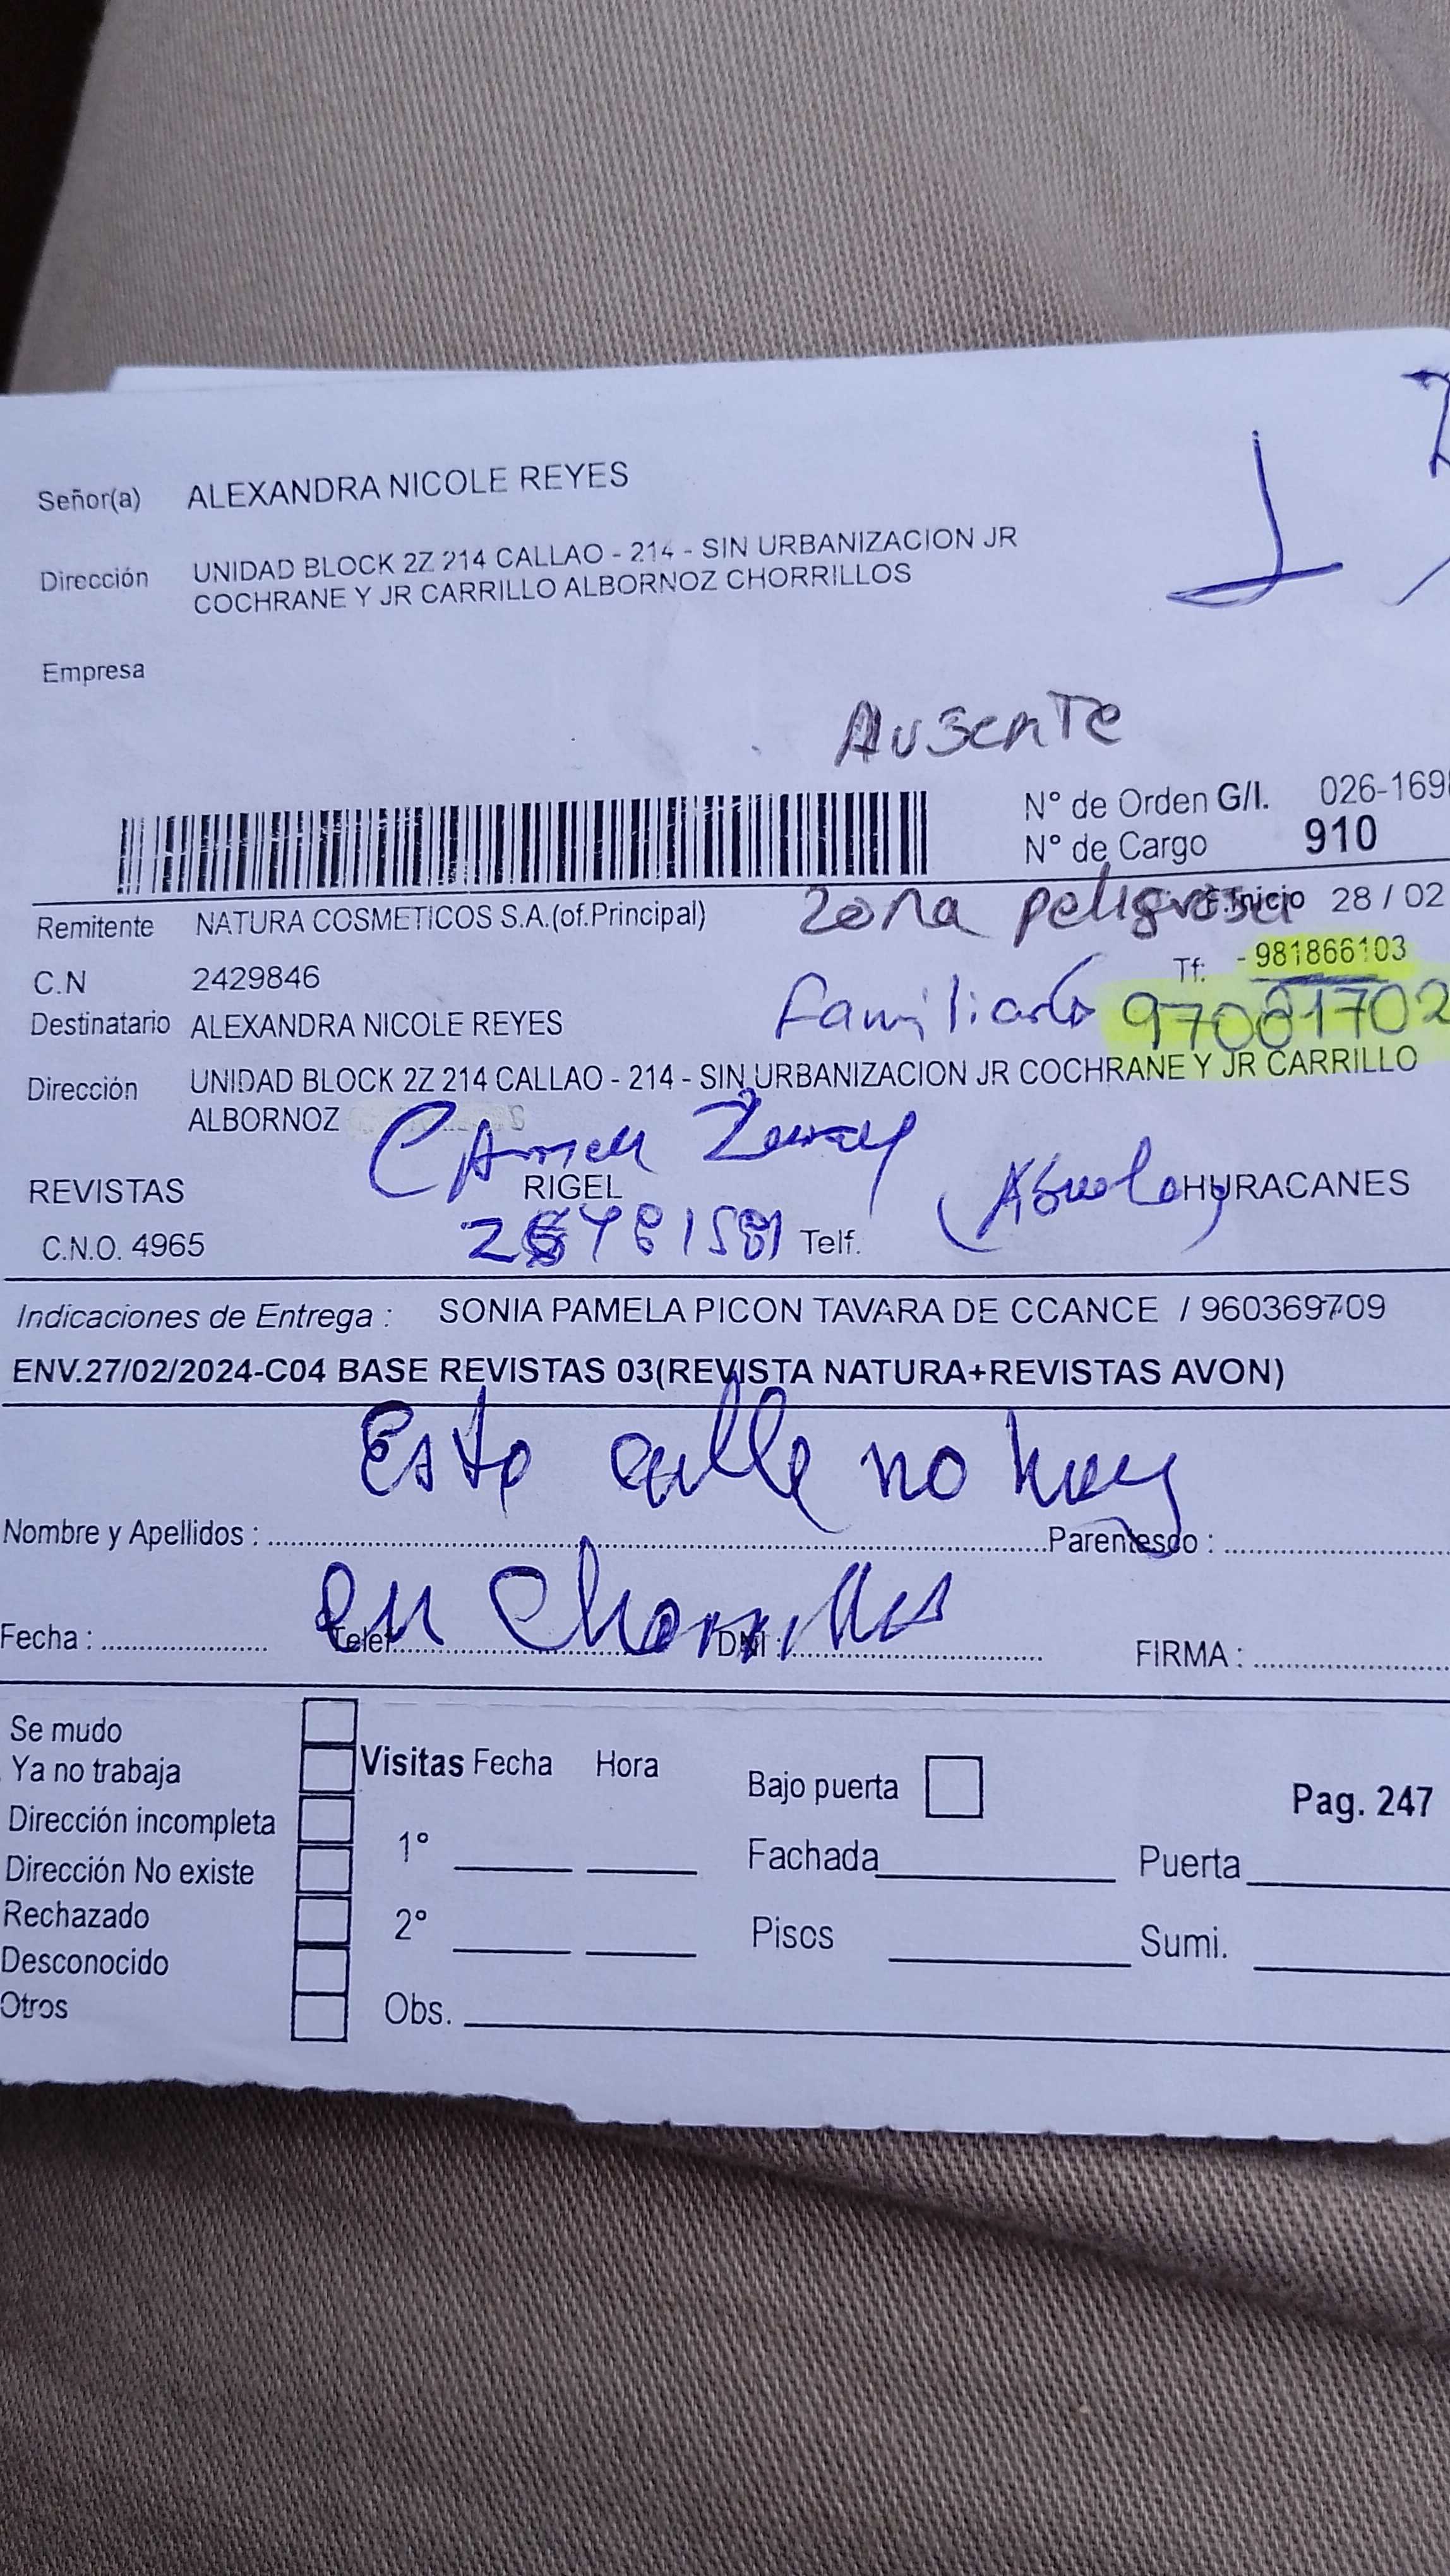 Señor(a) ALEXANDRA NICOLE REYES
Dirección UNIDAD BLOCK 2Z 214 CALLAO - 214 - SIN URBANIZACION JR
COCHRANE Y JR CARRILLO ALBORNOZ CHORRILLOS
Empresa
Ausente
N° de Orden G/I. 026-169
N° de Cargo 910
zona peligrosa
F.Inicio 28 / 02
Remitente NATURA COSMETICOS S.A.(of.Principal)
Tf: - 981866103
C.N 2429846
Destinatario ALEXANDRA NICOLE REYES
Dirección UNIDAD BLOCK 2Z 214 CALLAO - 214 - SIN URBANIZACION JR COCHRANE Y JR CARRILLO
ALBORNOZ
Carmen
(Abuela)
REVISTAS RIGEL HURACANES
C.N.O. 4965 Telf.
Indicaciones de Entrega : SONIA PAMELA PICON TAVARA DE CCANCE / 960369709
ENV.27/02/2024-C04 BASE REVISTAS 03(REVISTA NATURA+REVISTAS AVON)
Esta calle no hay
Nombre y Apellidos : Parentesco :
en Chorrillos
Fecha : Telef. DNI : FIRMA :
Se mudo
Ya no trabaja
Dirección incompleta
Dirección No existe
Rechazado
Desconocido
Otros
Visitas Fecha Hora
1°
2°
Obs.
Bajo puerta
Pag. 247
Fachada Puerta
Pisos Sumi.